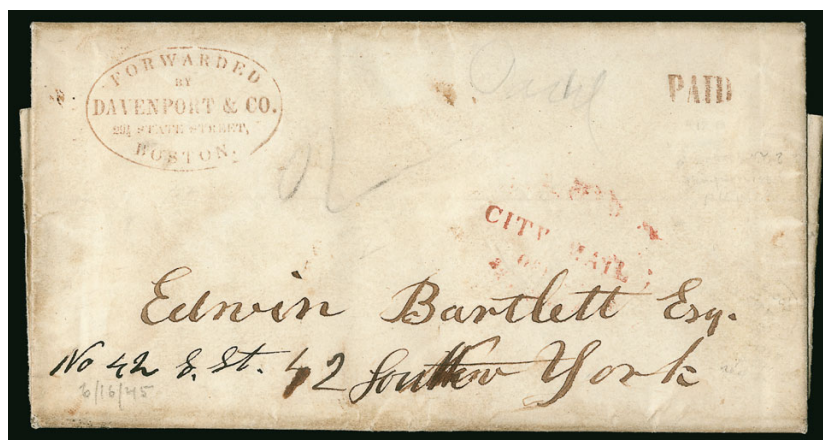 FORWARDED
BY
DAVENPORT & CO.
STATE STREET,
BOSTON.
PAID
Paid
2
CITY MAIL
Edwin Bartlett Esq.
No 42 S. St. 42 South York
6/16/45